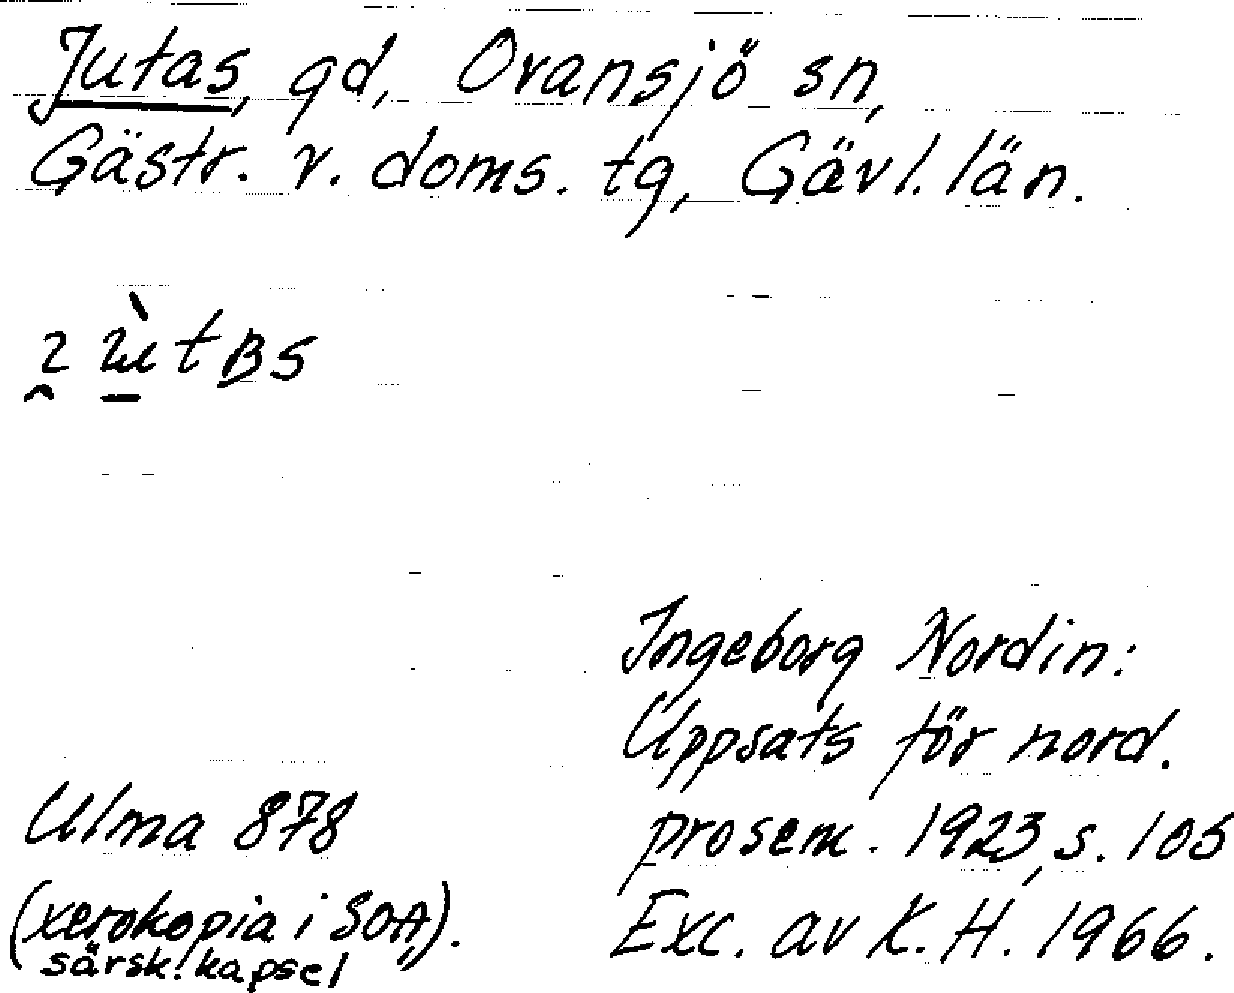 Jutas, gd, Ovansjö sn,
Gästr. v. doms. tg, Gävl. län.
Ingeborg Nordin:
Uppsats för nord.
Ulma 878
prosem. 1923, s. 105
(xerokopia i SOA,).
särsk. kapsel
Exc. av K. H. 1966.